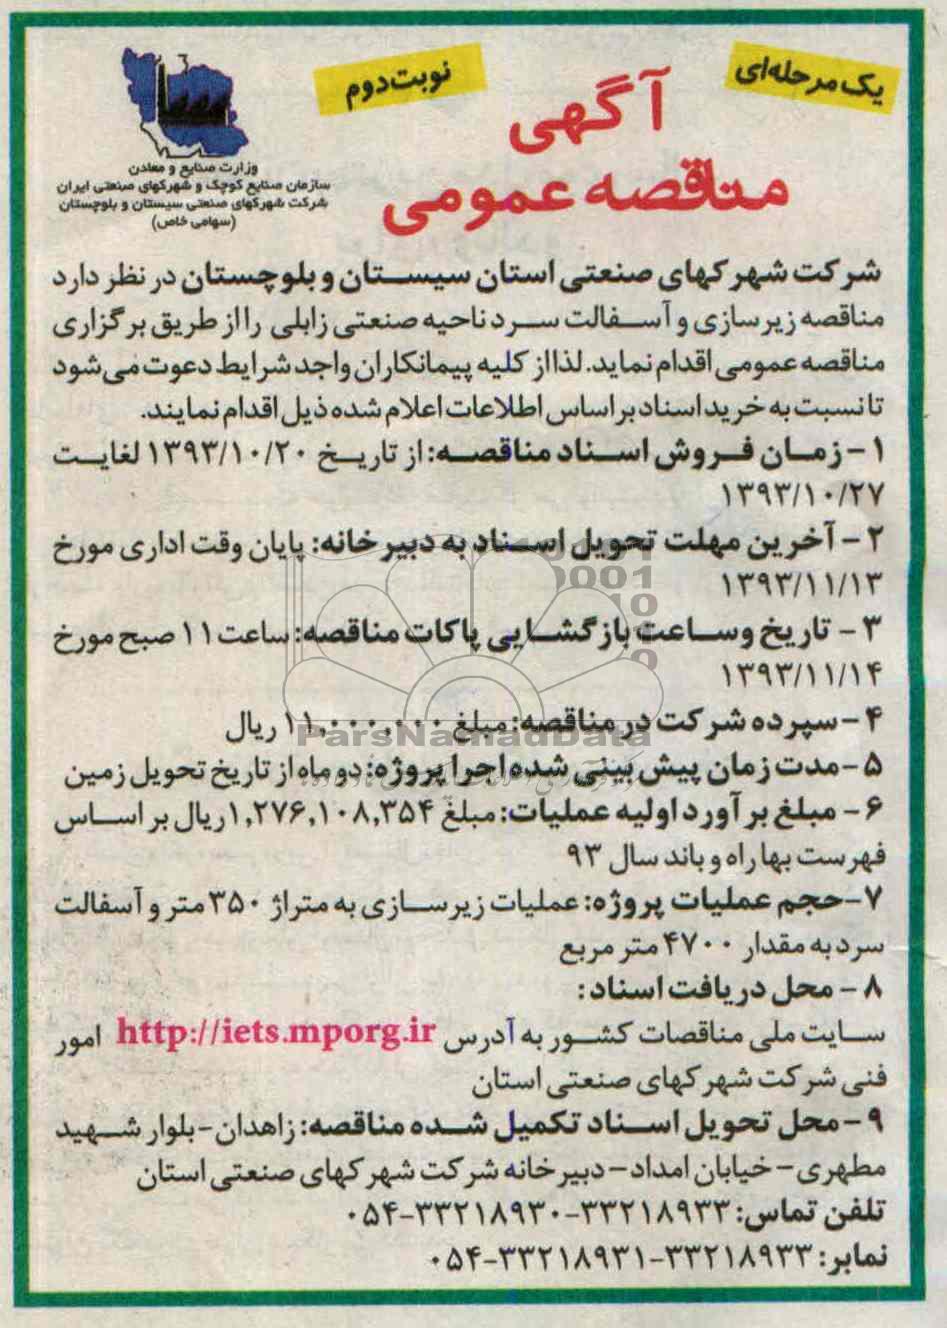 یک مرحله‌ای
نوبت دوم
آگهی
مناقصه عمومی
وزارت صنایع و معادن
سازمان صنایع کوچک و شهرکهای صنعتی ایران
شرکت شهرکهای صنعتی سیستان و بلوچستان
(سهامی خاص)
شرکت شهرکهای صنعتی استان سیستان و بلوچستان در نظر دارد
مناقصه زیرسازی و آسفالت سرد ناحیه صنعتی زابلی را از طریق برگزاری
مناقصه عمومی اقدام نماید. لذا از کلیه پیمانکاران واجد شرایط دعوت می‌شود
تا نسبت به خرید اسناد بر اساس اطلاعات اعلام شده ذیل اقدام نمایند.
۱- زمان فروش اسناد مناقصه: از تاریخ ۱۳۹۳/۱۰/۲۰ لغایت
۱۳۹۳/۱۰/۲۷
۲- آخرین مهلت تحویل اسناد به دبیرخانه: پایان وقت اداری مورخ
۱۳۹۳/۱۱/۱۳
۳- تاریخ و ساعت بازگشایی پاکات مناقصه: ساعت ۱۱ صبح مورخ
۱۳۹۳/۱۱/۱۴
۴- سپرده شرکت در مناقصه: مبلغ ۱۱,۰۰۰,۰۰۰ ریال
ParsNamadData
۵- مدت زمان پیش بینی شده اجرا پروژه: دو ماه از تاریخ تحویل زمین
۶- مبلغ برآورد اولیه عملیات: مبلغ ۱,۲۷۶,۱۰۸,۳۵۴ ریال بر اساس
فهرست بها راه و باند سال ۹۳
۷- حجم عملیات پروژه: عملیات زیرسازی به متراژ ۳۵۰ متر و آسفالت
سرد به مقدار ۴۷۰۰ متر مربع
۸- محل دریافت اسناد:
سایت ملی مناقصات کشور به آدرس http://iets.mporg.ir امور
فنی شرکت شهرکهای صنعتی استان
۹- محل تحویل اسناد تکمیل شده مناقصه: زاهدان- بلوار شهید
مطهری- خیابان امداد- دبیرخانه شرکت شهرکهای صنعتی استان
تلفن تماس: ۳۳۲۱۸۹۳۳-۰۵۴-۳۳۲۱۸۹۳۰
نمابر: ۳۳۲۱۸۹۳۳-۰۵۴-۳۳۲۱۸۹۳۱